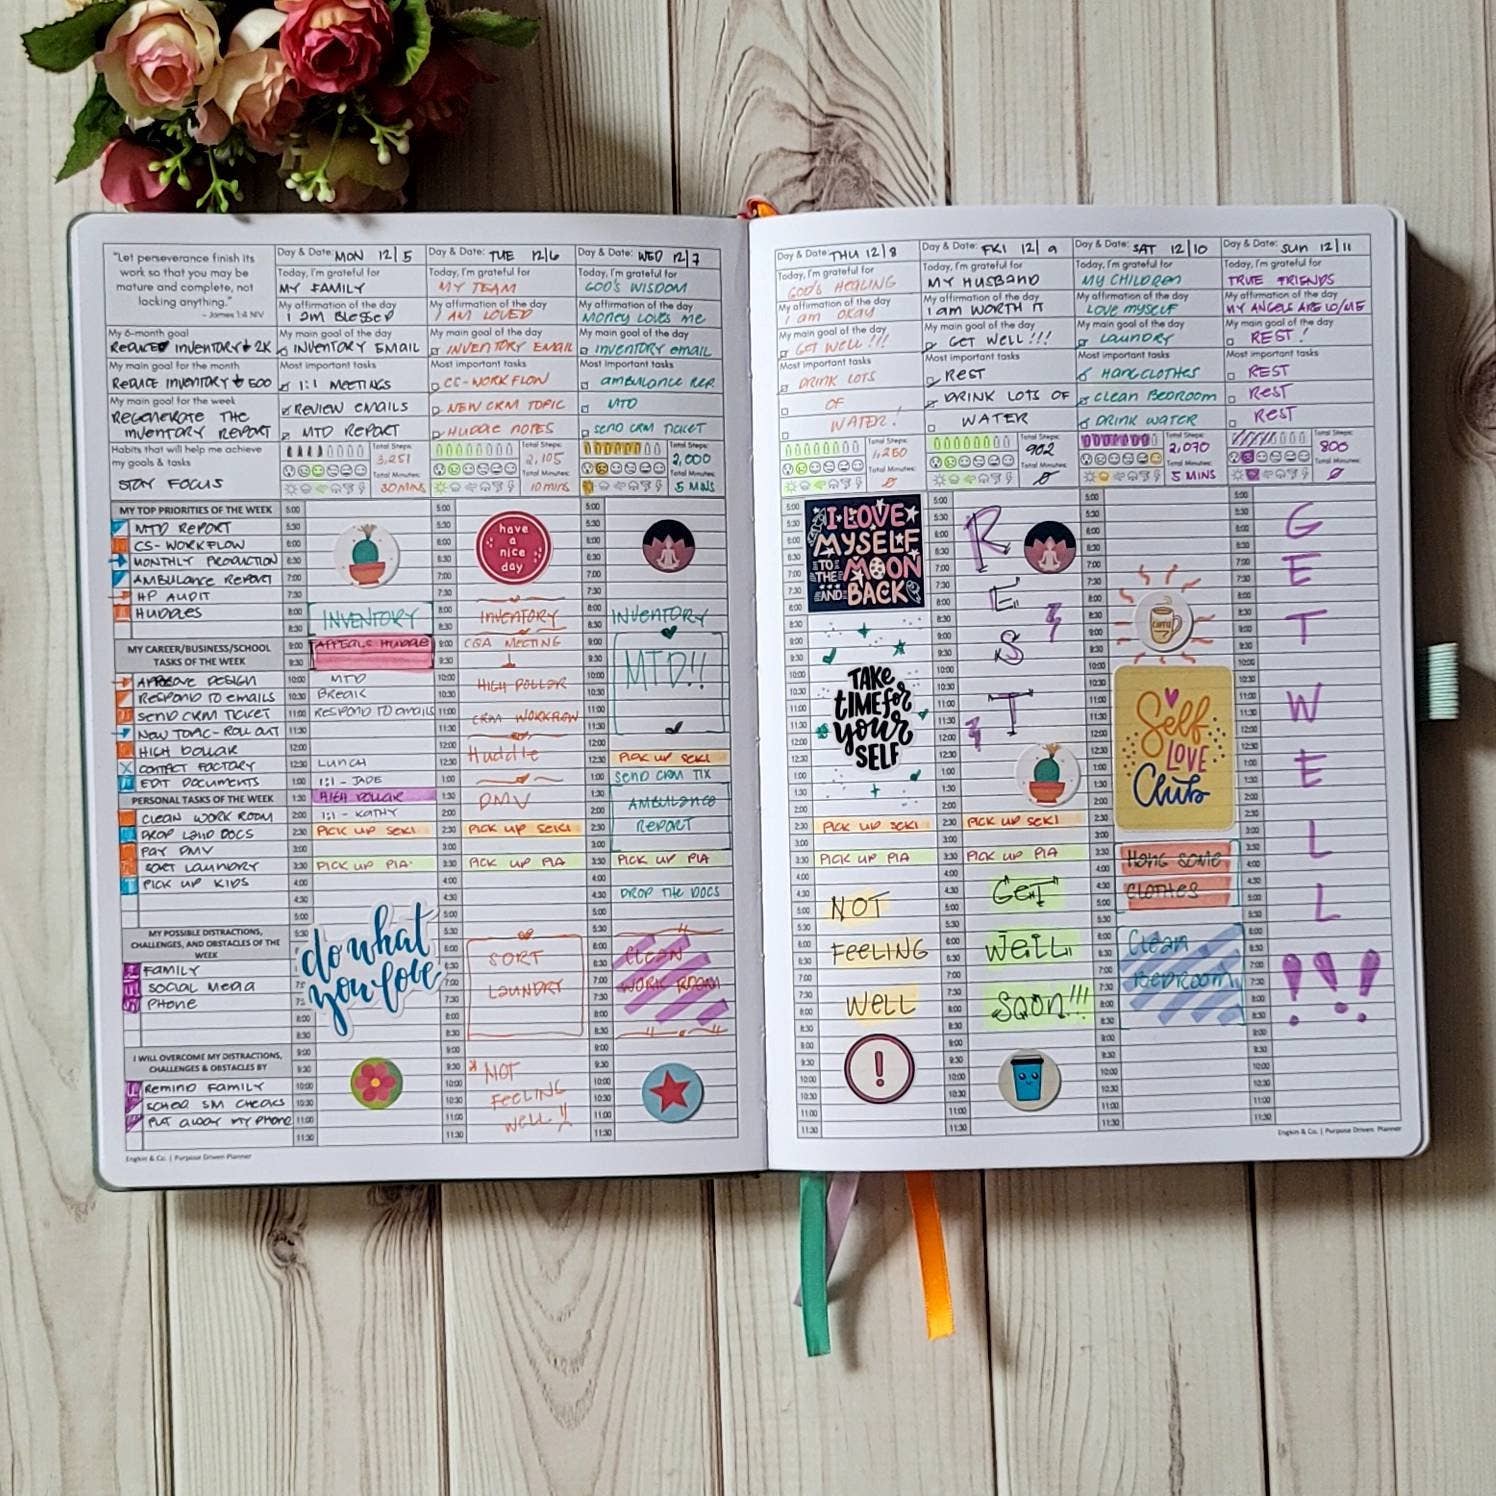 "Let perseverance finish its
work so that you may be
mature and complete, not
lacking anything."
- James 1:4 NIV
My 6-month goal
REDUCE INVENTORY ↓ 2K
My main goal for the month
REDUCE INVENTORY ↓ 500
My main goal for the week
REGENERATE THE
INVENTORY REPORT
Habits that will help me achieve
my goals & tasks
STAY FOCUS
MY TOP PRIORITIES OF THE WEEK
MTD REPORT
CS-WORKFLOW
MONTHLY PRODUCTION
AMBULANCE REPORT
HP AUDIT
HUDDLES
MY CAREER/BUSINESS/SCHOOL
TASKS OF THE WEEK
APPROVE DESIGN
RESPOND TO EMAILS
SEND CRM TICKET
NEW TOPIC-ROLL OUT
HIGH DOLLAR
CONTACT FACTORY
EDIT DOCUMENTS
PERSONAL TASKS OF THE WEEK
CLEAN WORK ROOM
DROP LAND DOCS
PAY DMV
SORT LAUNDRY
PICK UP KIDS
MY POSSIBLE DISTRACTIONS,
CHALLENGES, AND OBSTACLES OF THE
WEEK
FAMILY
SOCIAL MEDIA
PHONE
I WILL OVERCOME MY DISTRACTIONS,
CHALLENGES & OBSTACLES BY
REMIND FAMILY
SM CHECKS
PUT AWAY MY PHONE
Engkin & Co. | Purpose Driven Planner
Day & Date: MON 12/5
Today, I'm grateful for
MY FAMILY
My affirmation of the day
I am BLESSED
My main goal of the day
INVENTORY EMAIL
Most important tasks
1:1 MEETINGS
REVIEW EMAILS
MTD REPORT
Total Steps:
3,251
Total Minutes:
30 MINS
INVENTORY
APPEALS HUDDLE
MTD
BREAK
RESPOND TO EMAILS
LUNCH
1:1 - JADE
HIGH DOLLAR
1:1 - KATHY
PICK UP SEKI
PICK UP PIA
do what
you love
Day & Date: TUE 12/6
Today, I'm grateful for
MY TEAM
My affirmation of the day
I AM LOVED
My main goal of the day
INVENTORY EMAIL
Most important tasks
CS-WORKFLOW
NEW CRM TOPIC
HUDDLE NOTES
Total Steps:
2,105
Total Minutes:
10 mins
have
a
nice
day
INVENTORY
CQA MEETING
HIGH DOLLAR
CRM WORKFLOW
Huddle
DMV
PICK UP SEKI
PICK UP PIA
SORT
LAUNDRY
* NOT
FEELING
WELL!!
Day & Date: WED 12/7
Today, I'm grateful for
GOD'S WISDOM
My affirmation of the day
MONEY LOVES ME
My main goal of the day
INVENTORY EMAIL
Most important tasks
AMBULANCE REP
MTD
SEND CRM TICKET
Total Steps:
2,000
Total Minutes:
5 MINS
INVENTORY
MTD!!
PICK UP SEKI
SEND CRM TIX
AMBULANCE
REPORT
PICK UP PIA
DROP THE DOCS
CLEAN
WORK ROOM
Day & Date: THU 12/8
Today, I'm grateful for
GOD'S HEALING
My affirmation of the day
I am OKAY
My main goal of the day
GET WELL!!!
Most important tasks
DRINK LOTS
OF
WATER!
Total Steps:
1,260
Total Minutes:
I LOVE
MYSELF
TO
THE MOON
AND BACK
TAKE
TIME for
your
SELF
PICK UP SEKI
PICK UP PIA
NOT
FEELING
WELL
!
Day & Date: FRI 12/9
Today, I'm grateful for
MY HUSBAND
My affirmation of the day
I am WORTH IT
My main goal of the day
GET WELL!!!
Most important tasks
REST
DRINK LOTS OF
WATER
Total Steps:
902
Total Minutes:
R
E
S
T
PICK UP SEKI
PICK UP PIA
GET
WELL
SOON!!!
Day & Date: SAT 12/10
Today, I'm grateful for
MY CHILDREN
My affirmation of the day
LOVE MYSELF
My main goal of the day
LAUNDRY
Most important tasks
HANG CLOTHES
CLEAN BEDROOM
DRINK WATER
Total Steps:
2,070
Total Minutes:
5 MINS
COFFEE
Self
LOVE
Club
HANG SOME
CLOTHES
Clean
BEDROOM
Day & Date: SUN 12/11
Today, I'm grateful for
TRUE FRIENDS
My affirmation of the day
MY ANGELS ARE W/ME
My main goal of the day
REST!
Most important tasks
REST
REST
REST
Total Steps:
800
Total Minutes:
G
E
T
W
E
L
L
!!!
Engkin & Co. | Purpose Driven Planner